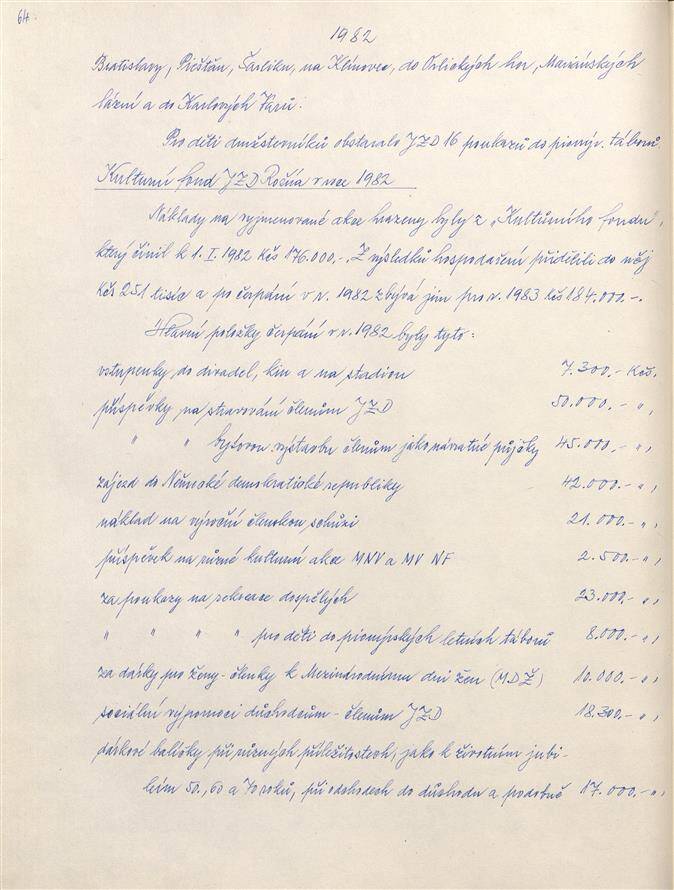 64
1982
Bratislavy, Piešťan, na Klínovec, do Orlických hor, Mariánských
lázní a do Karlových Varů.
Pro děti družstevníků obstaralo JZD 16 poukazů do pionýr. táborů.
Kulturní fond JZD Ročňa v roce 1982
Náklady na vyjmenované akce hrazeny byly z „Kultůrního fondu",
který činil k 1. I. 1982 Kčs 176.000,-. Z výsledků hospodaření přidělili do něj
Kčs 251 tisíc a po čerpání v r. 1982 zbývá jim pro r. 1983 Kčs 184.000.-.
Hlavní položky čerpání v r. 1982 byly tyto:
vstupenky do divadel, kin a na stadion 7.300.- Kčs.
příspěvky na stravování členům JZD 50.000.- " ,
" " bytovou výstavbu členům jako návratné půjčky 45.000.- " ,
zájezd do Německé demokratické republiky 42.000.- " ,
náklad na výroční členskou schůzi 21.000.- " ,
příspěvek na různé kulturní akce MNV a MV NF 2.500.- " ,
za poukazy na rekreace dospělých 23.000.- " ,
" " " " pro děti do pionýrských letních táborů 8.000.- " ,
za dárky pro ženy - členky k Mezinárodnímu dni žen (MDŽ) 10.000.- " ,
sociální výpomoci důchodcům - členům JZD 18.300.- " ,
dárkové balíčky při různých příležitostech, jako k životním jubi-
leím 50., 60 a 70 roků, při odchodech do důchodu a podobně 17.000.- " ,